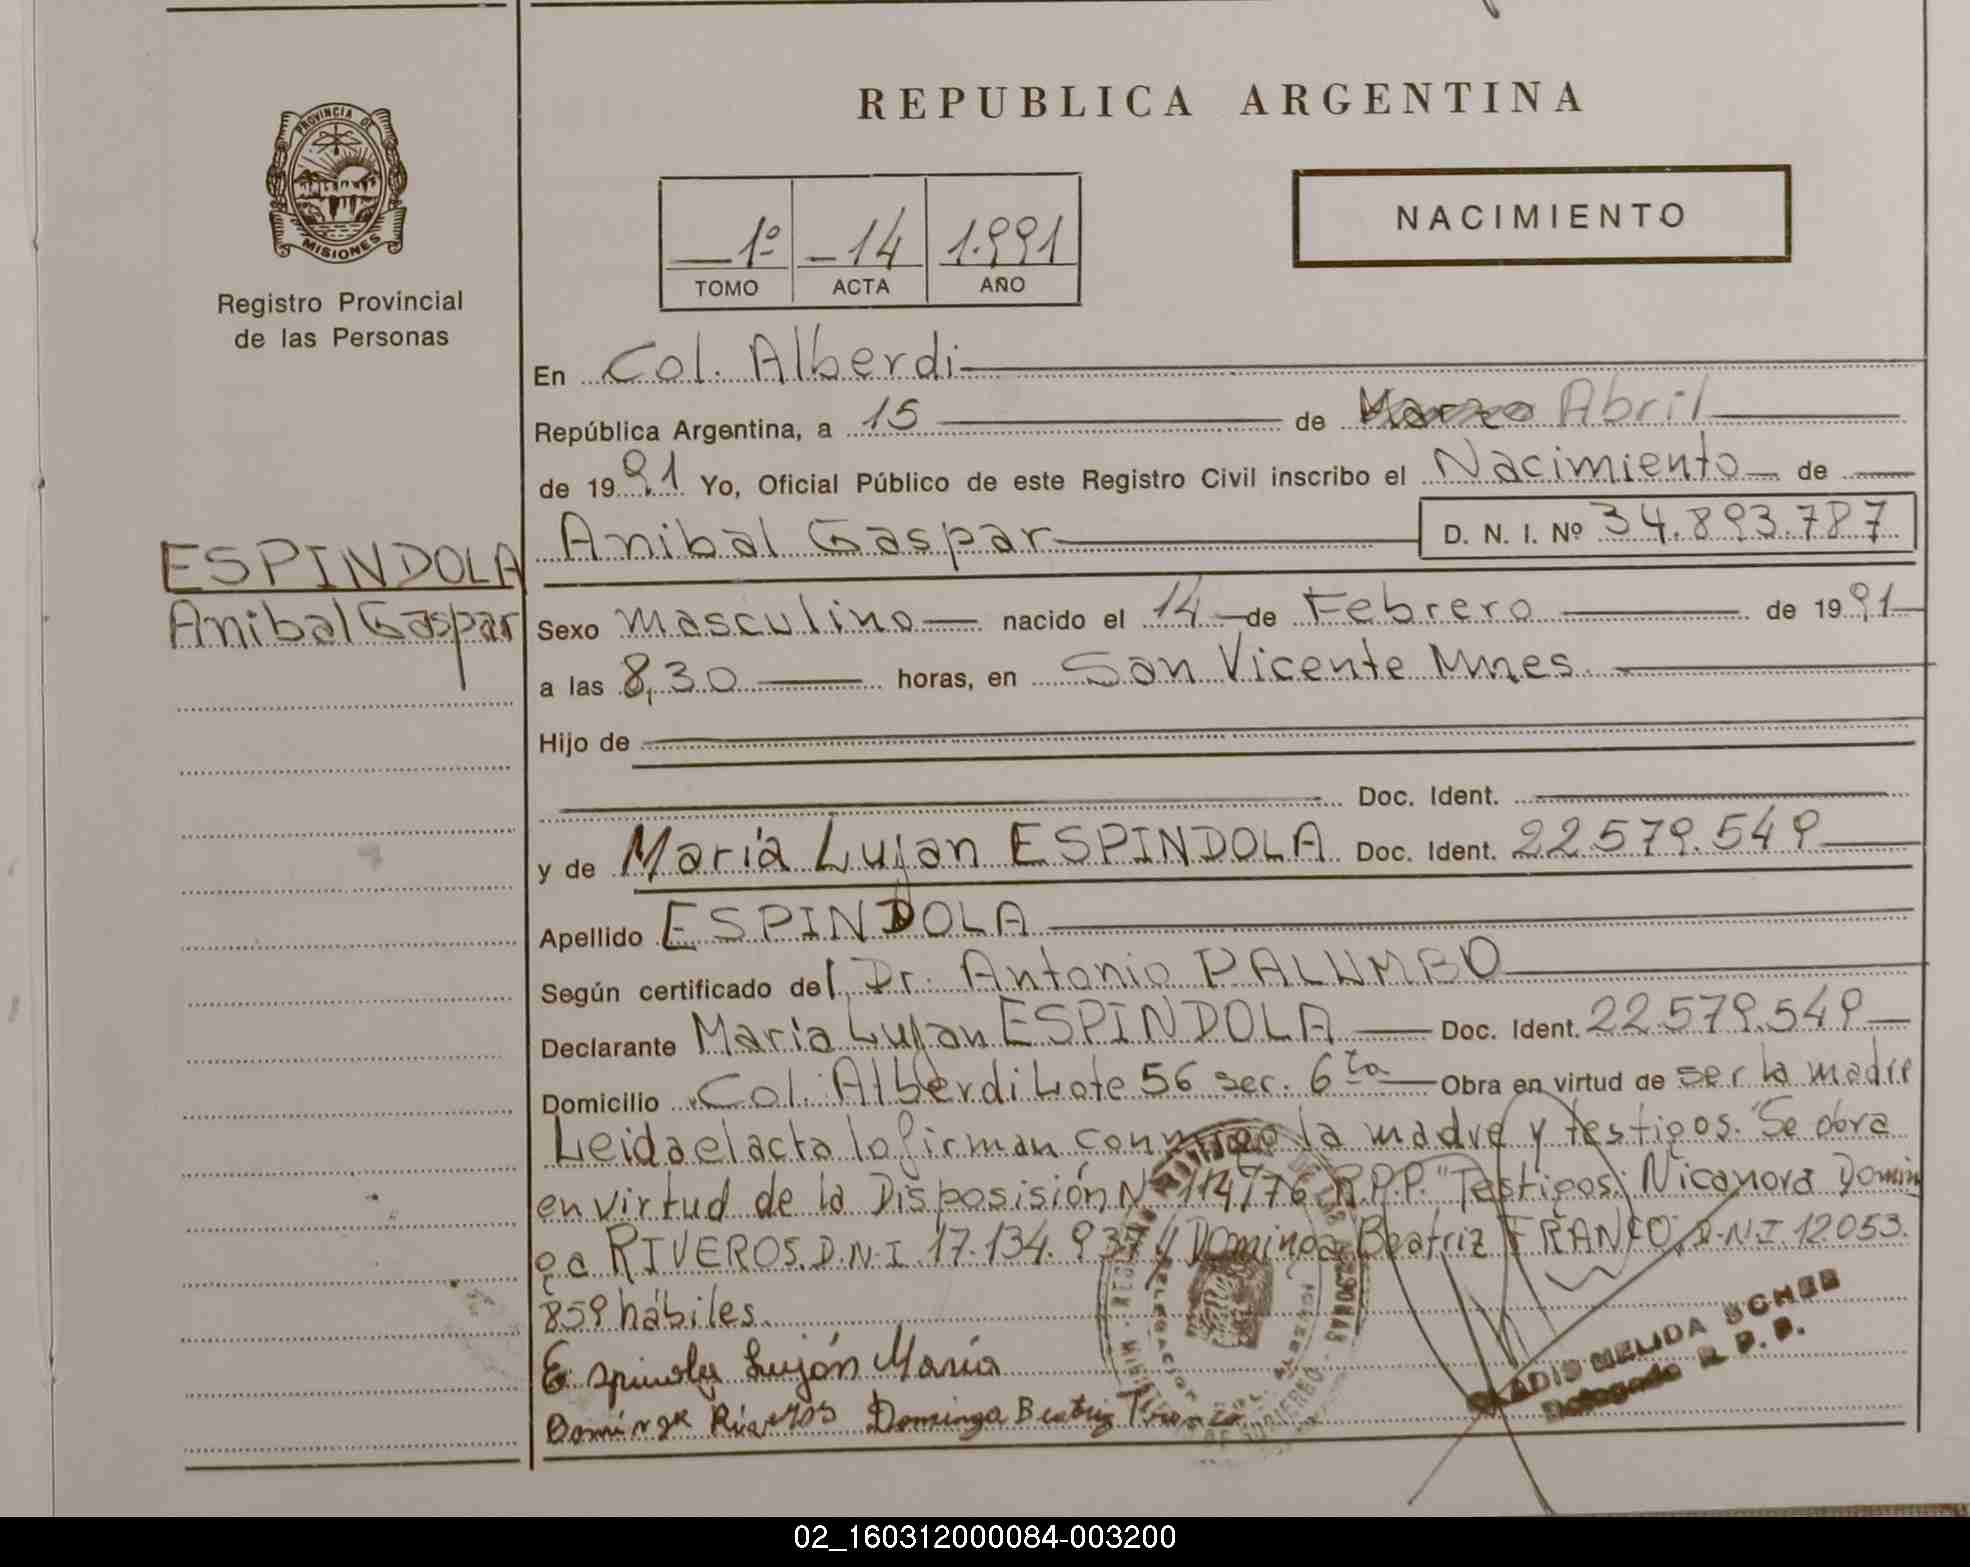 REPUBLICA ARGENTINA
PROVINCIA DE
MISIONES
Registro Provincial
de las Personas
1º -14 1.991
TOMO ACTA AÑO
NACIMIENTO
En Col. Alberdi
República Argentina, a 15 de Marzo Abril
de 1991 Yo, Oficial Público de este Registro Civil inscribo el Nacimiento de
Anibal Gaspar D. N. I. Nº 34.893.787
ESPINDOLA
Anibal Gaspar
Sexo masculino nacido el 14 de Febrero de 1991
a las 8,30 horas, en San Vicente Mnes.
Hijo de
Doc. Ident.
y de Maria Lujan ESPINDOLA Doc. Ident. 22.579.549
Apellido ESPINDOLA
Según certificado del Dr. Antonio PALUMBO
Declarante Maria Lujan ESPINDOLA Doc. Ident. 22.579.549
Domicilio Col. Alberdi Lote 56 sec. 6ta Obra en virtud de ser la madre
Leida el acta lo firman conmigo la madre y testigos. "Se obra
en virtud de la Disposisión Nº 114/76 R.P.P." Testigos: Nicanora Domin
ga RIVEROS. D.N.I. 17.134.937 // Dominga Beatriz FRANCO, D.N.I. 12.053.
859 hábiles.
Espindola Luján María
Dominga Riveros Dominga Beatriz Franco
GLADIS MELIDA SCHEE
Delegada R. P. P.
02_160312000084-003200